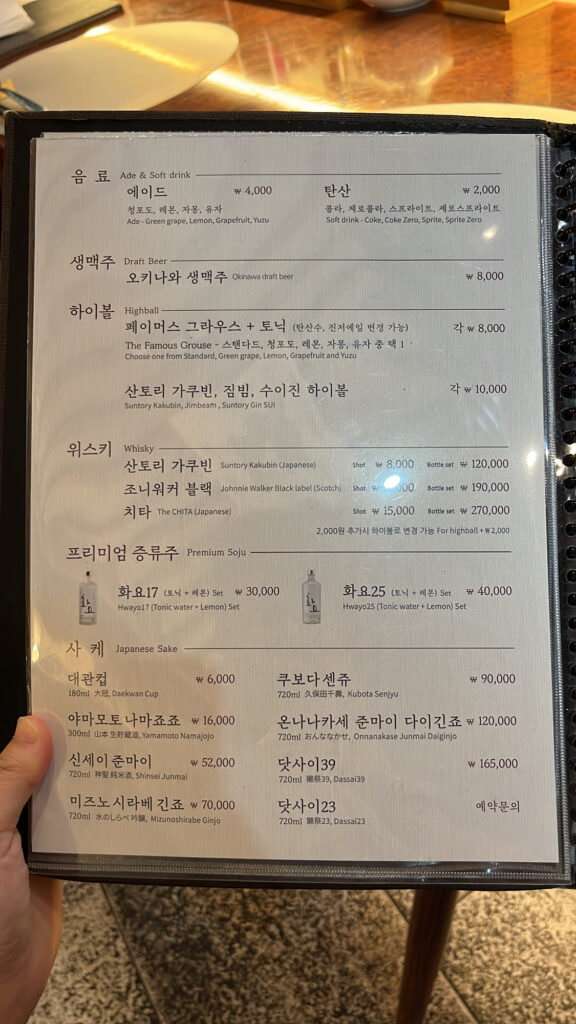 음 료 Ade & Soft drink
에이드 ₩ 4,000
청포도, 레몬, 자몽, 유자
Ade - Green grape, Lemon, Grapefruit, Yuzu
탄산 ₩ 2,000
콜라, 제로콜라, 스프라이트, 제로스프라이트
Soft drink - Coke, Coke Zero, Sprite, Sprite Zero
생맥주 Draft Beer
오키나와 생맥주 Okinawa draft beer ₩ 8,000
하이볼 Highball
페이머스 그라우스 + 토닉 (탄산수, 진저에일 변경 가능) 각 ₩ 8,000
The Famous Grouse - 스탠다드, 청포도, 레몬, 자몽, 유자 중 택 1
Choose one from Standard, Green grape, Lemon, Grapefruit and Yuzu
산토리 가쿠빈, 짐빔, 수이진 하이볼 각 ₩ 10,000
Suntory Kakubin, Jimbeam , Suntory Gin SUI
위스키 Whisky
산토리 가쿠빈 Suntory Kakubin (Japanese) Shot ₩ 8,000 Bottle set ₩ 120,000
조니워커 블랙 Johnnie Walker Black label (Scotch) Shot ₩ Bottle set ₩ 190,000
치타 The CHITA (Japanese) Shot ₩ 15,000 Bottle set ₩ 270,000
2,000원 추가시 하이볼로 변경 가능 For highball + ₩ 2,000
프리미엄 증류주 Premium Soju
화요
화요17 (토닉 + 레몬) Set ₩ 30,000
Hwayo17 (Tonic water + Lemon) Set
화요
화요25 (토닉 + 레몬) Set ₩ 40,000
Hwayo25 (Tonic water + Lemon) Set
사 케 Japanese Sake
대관컵 ₩ 6,000
180ml 大冠, Daekwan Cup
쿠보다 센쥬 ₩ 90,000
720ml 久保田千壽, Kubota Senjyu
야마모토 나마죠죠 ₩ 16,000
300ml 山本 生貯蔵酒, Yamamoto Namajojo
온나나카세 준마이 다이긴죠 ₩ 120,000
720ml おんななかせ, Onnanakase Junmai Daiginjo
신세이 준마이 ₩ 52,000
720ml 神聖 純米酒, Shinsei Junmai
닷사이39 ₩ 165,000
720ml 獺祭39, Dassai39
미즈노시라베 긴죠 ₩ 70,000
720ml 水のしらべ 吟醸, Mizunoshirabe Ginjo
닷사이23 예약문의
720ml 獺祭23, Dassai23